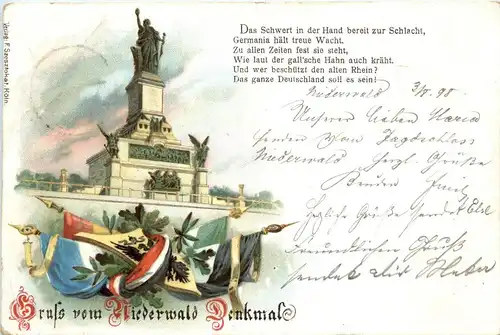 Das Schwert in der Hand bereit zur Schlacht,
Germania hält treue Wacht.
Zu allen Zeiten fest sie steht,
Wie laut der gall'sche Hahn auch kräht.
Und wer beschützt den alten Rhein?
Das ganze Deutschland soll es sein!
Niederwald 3/7. 98
Unserer lieben Maria
senden vom Jagdschloss
Niederwald herzl. Grüße
Herzliche Grüße sendet
Freundlichen Gruß
sendet
Gruss vom Niederwald Denkmal